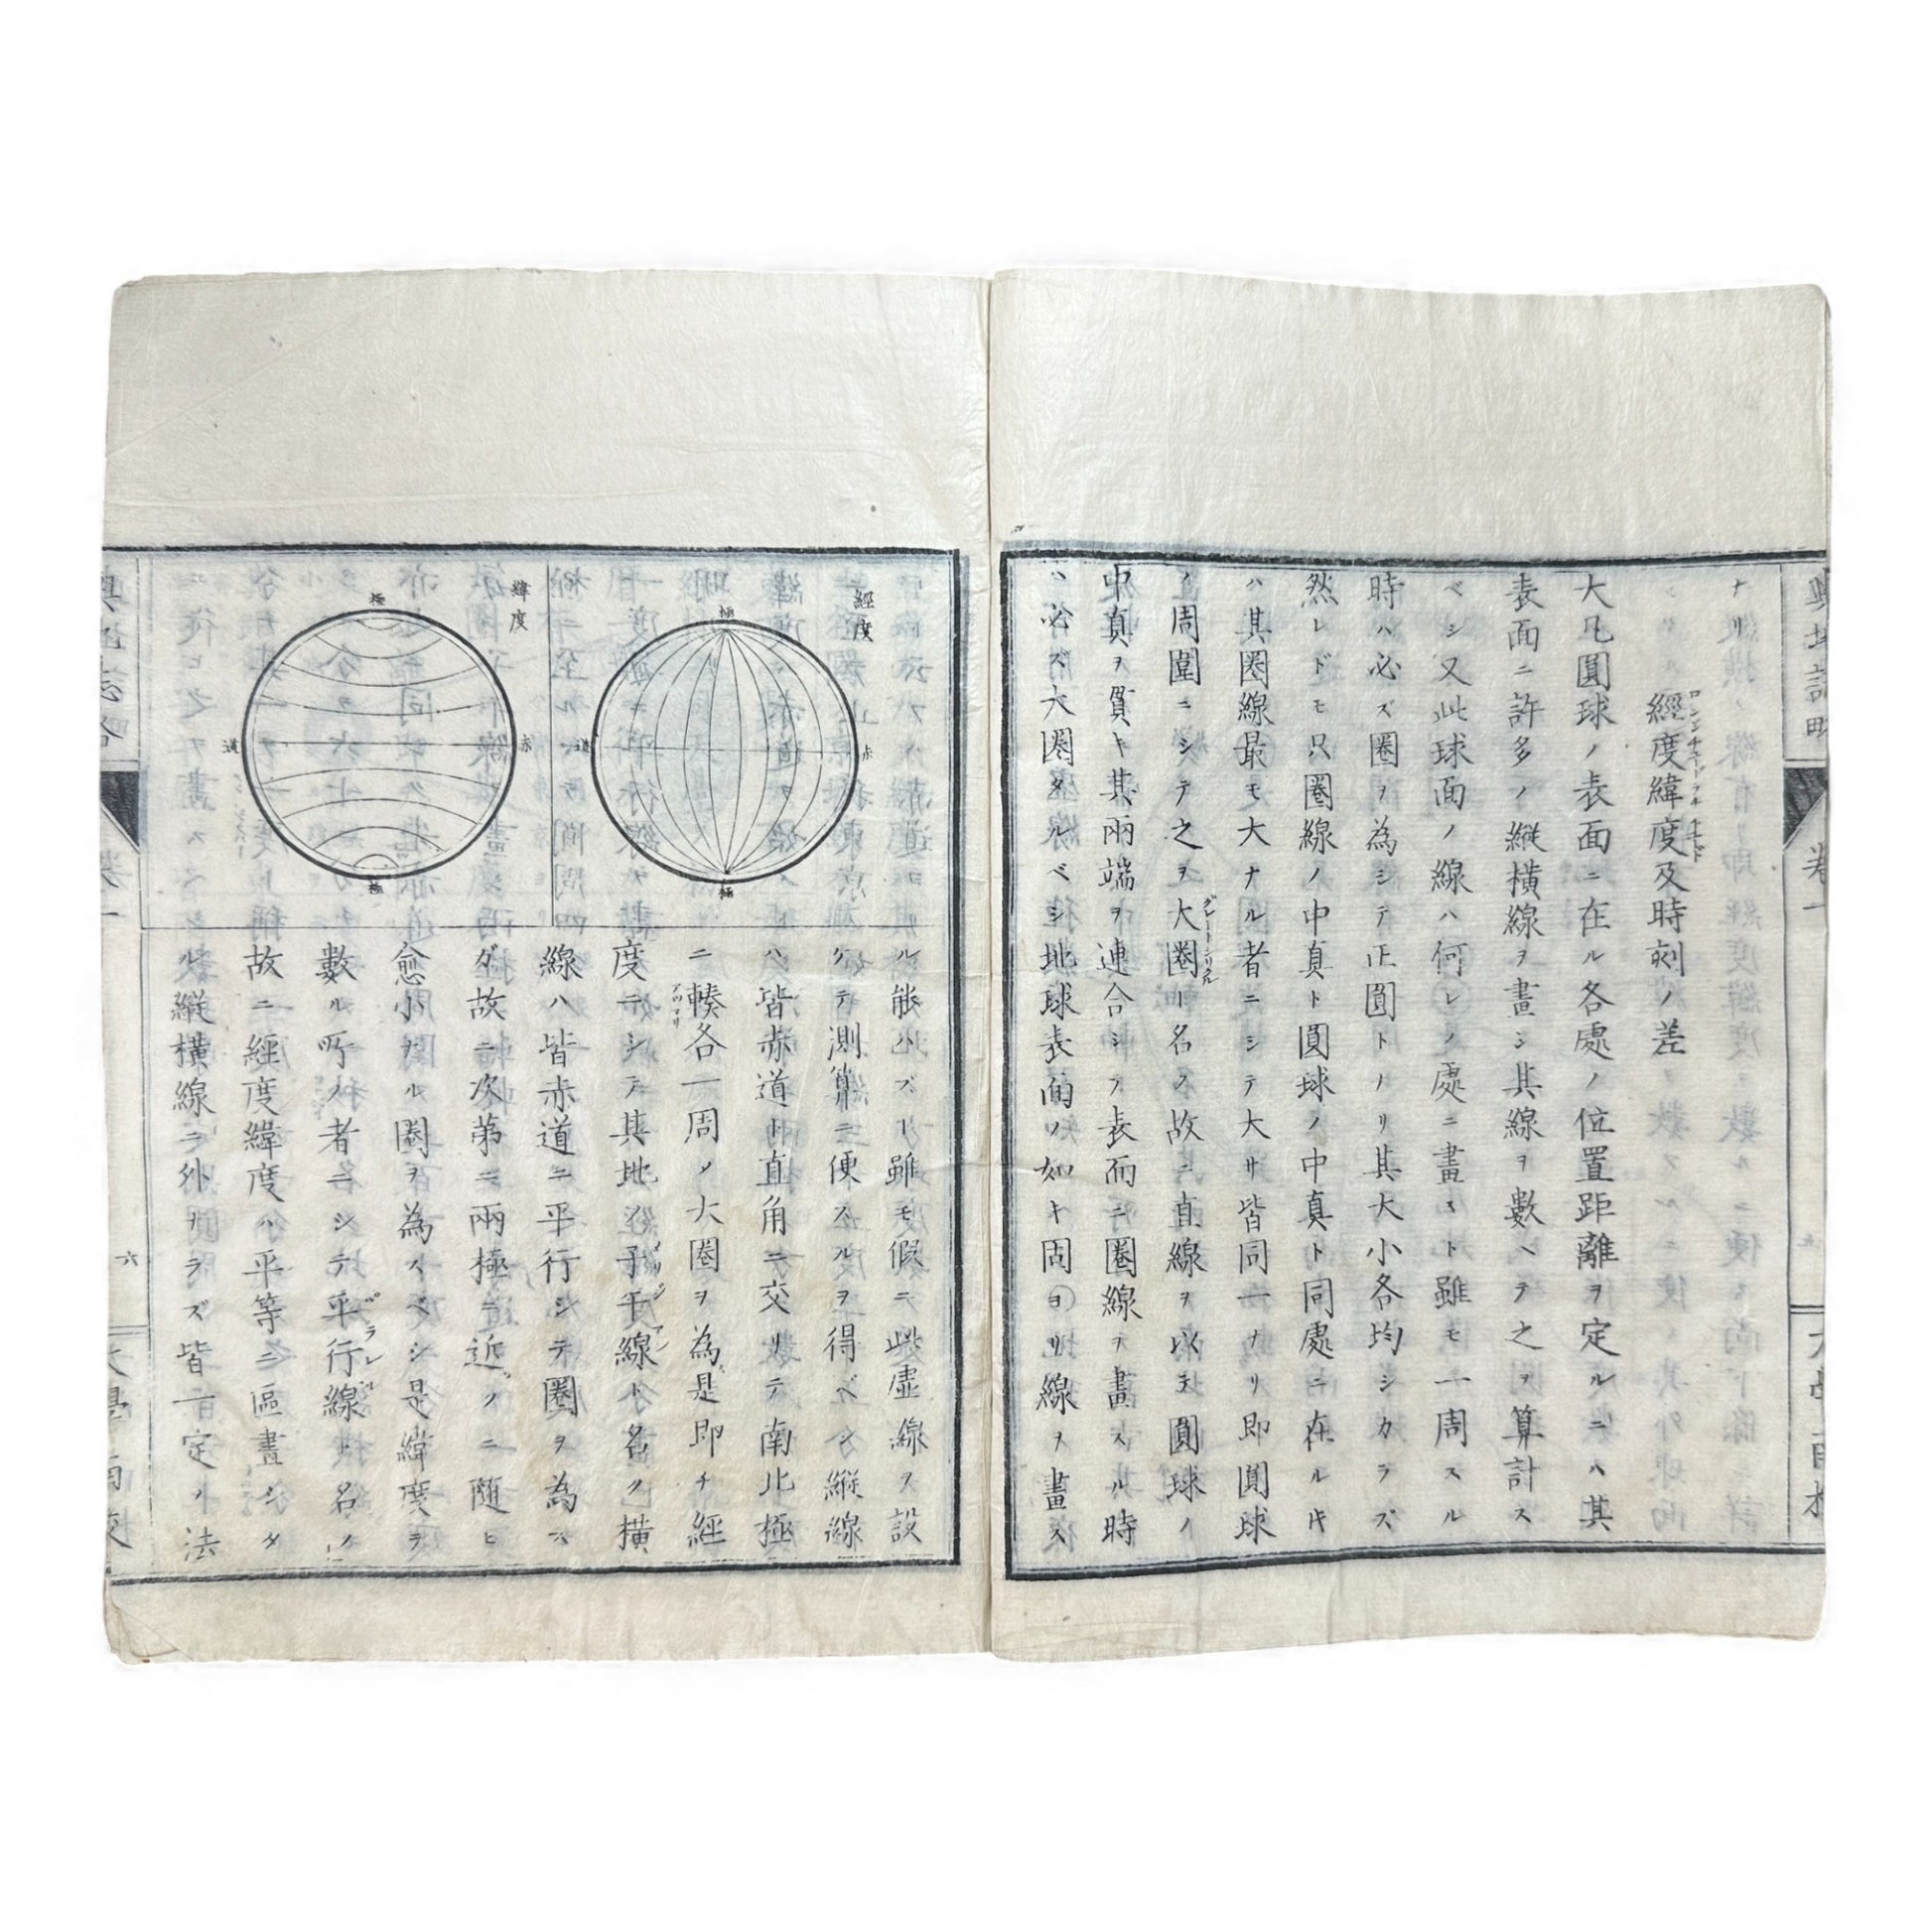 ナリ
經度緯度及時刻ノ差
大凡圓球ノ表面ニ在ル各處ノ位置距離ヲ定ルニハ其
表面ニ許多ノ縱橫線ヲ畫シ其線ヲ數ヘテ之ヲ算計ス
ベシ又此球面ノ線ハ何レノ處ニ畫スト雖モ一周スル
時ハ必ズ圈ヲ為シテ正圓トナリ其大小各均シカラズ
然レドモ只圈線ノ中真ト圓球ノ中真ト同處ニ在ルキ
ハ其圈線最モ大ナル者ニシテ大サ皆同一ナリ即圓球
ノ周圍ニシテ之ヲ大圈ト名ク故ニ直線ヲ以テ圓球ノ
中真ヲ貫キ其兩端ヲ連合シテ表面ニ圈線ヲ畫スル時
ハ必ズ大圈タルベシ地球表面ノ如キ固ヨリ線ヲ畫ス
經度
極
赤
道
極
緯度
極
赤
道
極
ル能ハズト雖モ假ニ此虛線ヲ設
ケテ測算ニ便スルヲ得ベシ縱線
ハ皆赤道ト直角ニ交リテ南北極
ニ輳各一周ノ大圈ヲ為ス是即チ經
アツマリ
度ニシテ其地ノ子午線ト名ク橫
線ハ皆赤道ニ平行シテ圈ヲ為ス
ガ故ニ次第ニ兩極ニ近ヅクニ隨ヒ
愈小ナル圈ヲ為スベシ是緯度ヲ
數ル所ノ者ニシテ平行線ト名ク
故ニ經度緯度ハ平等ニ區畫シタ
ル縱橫線ニ外ナラズ皆一定ノ法
卷一
六